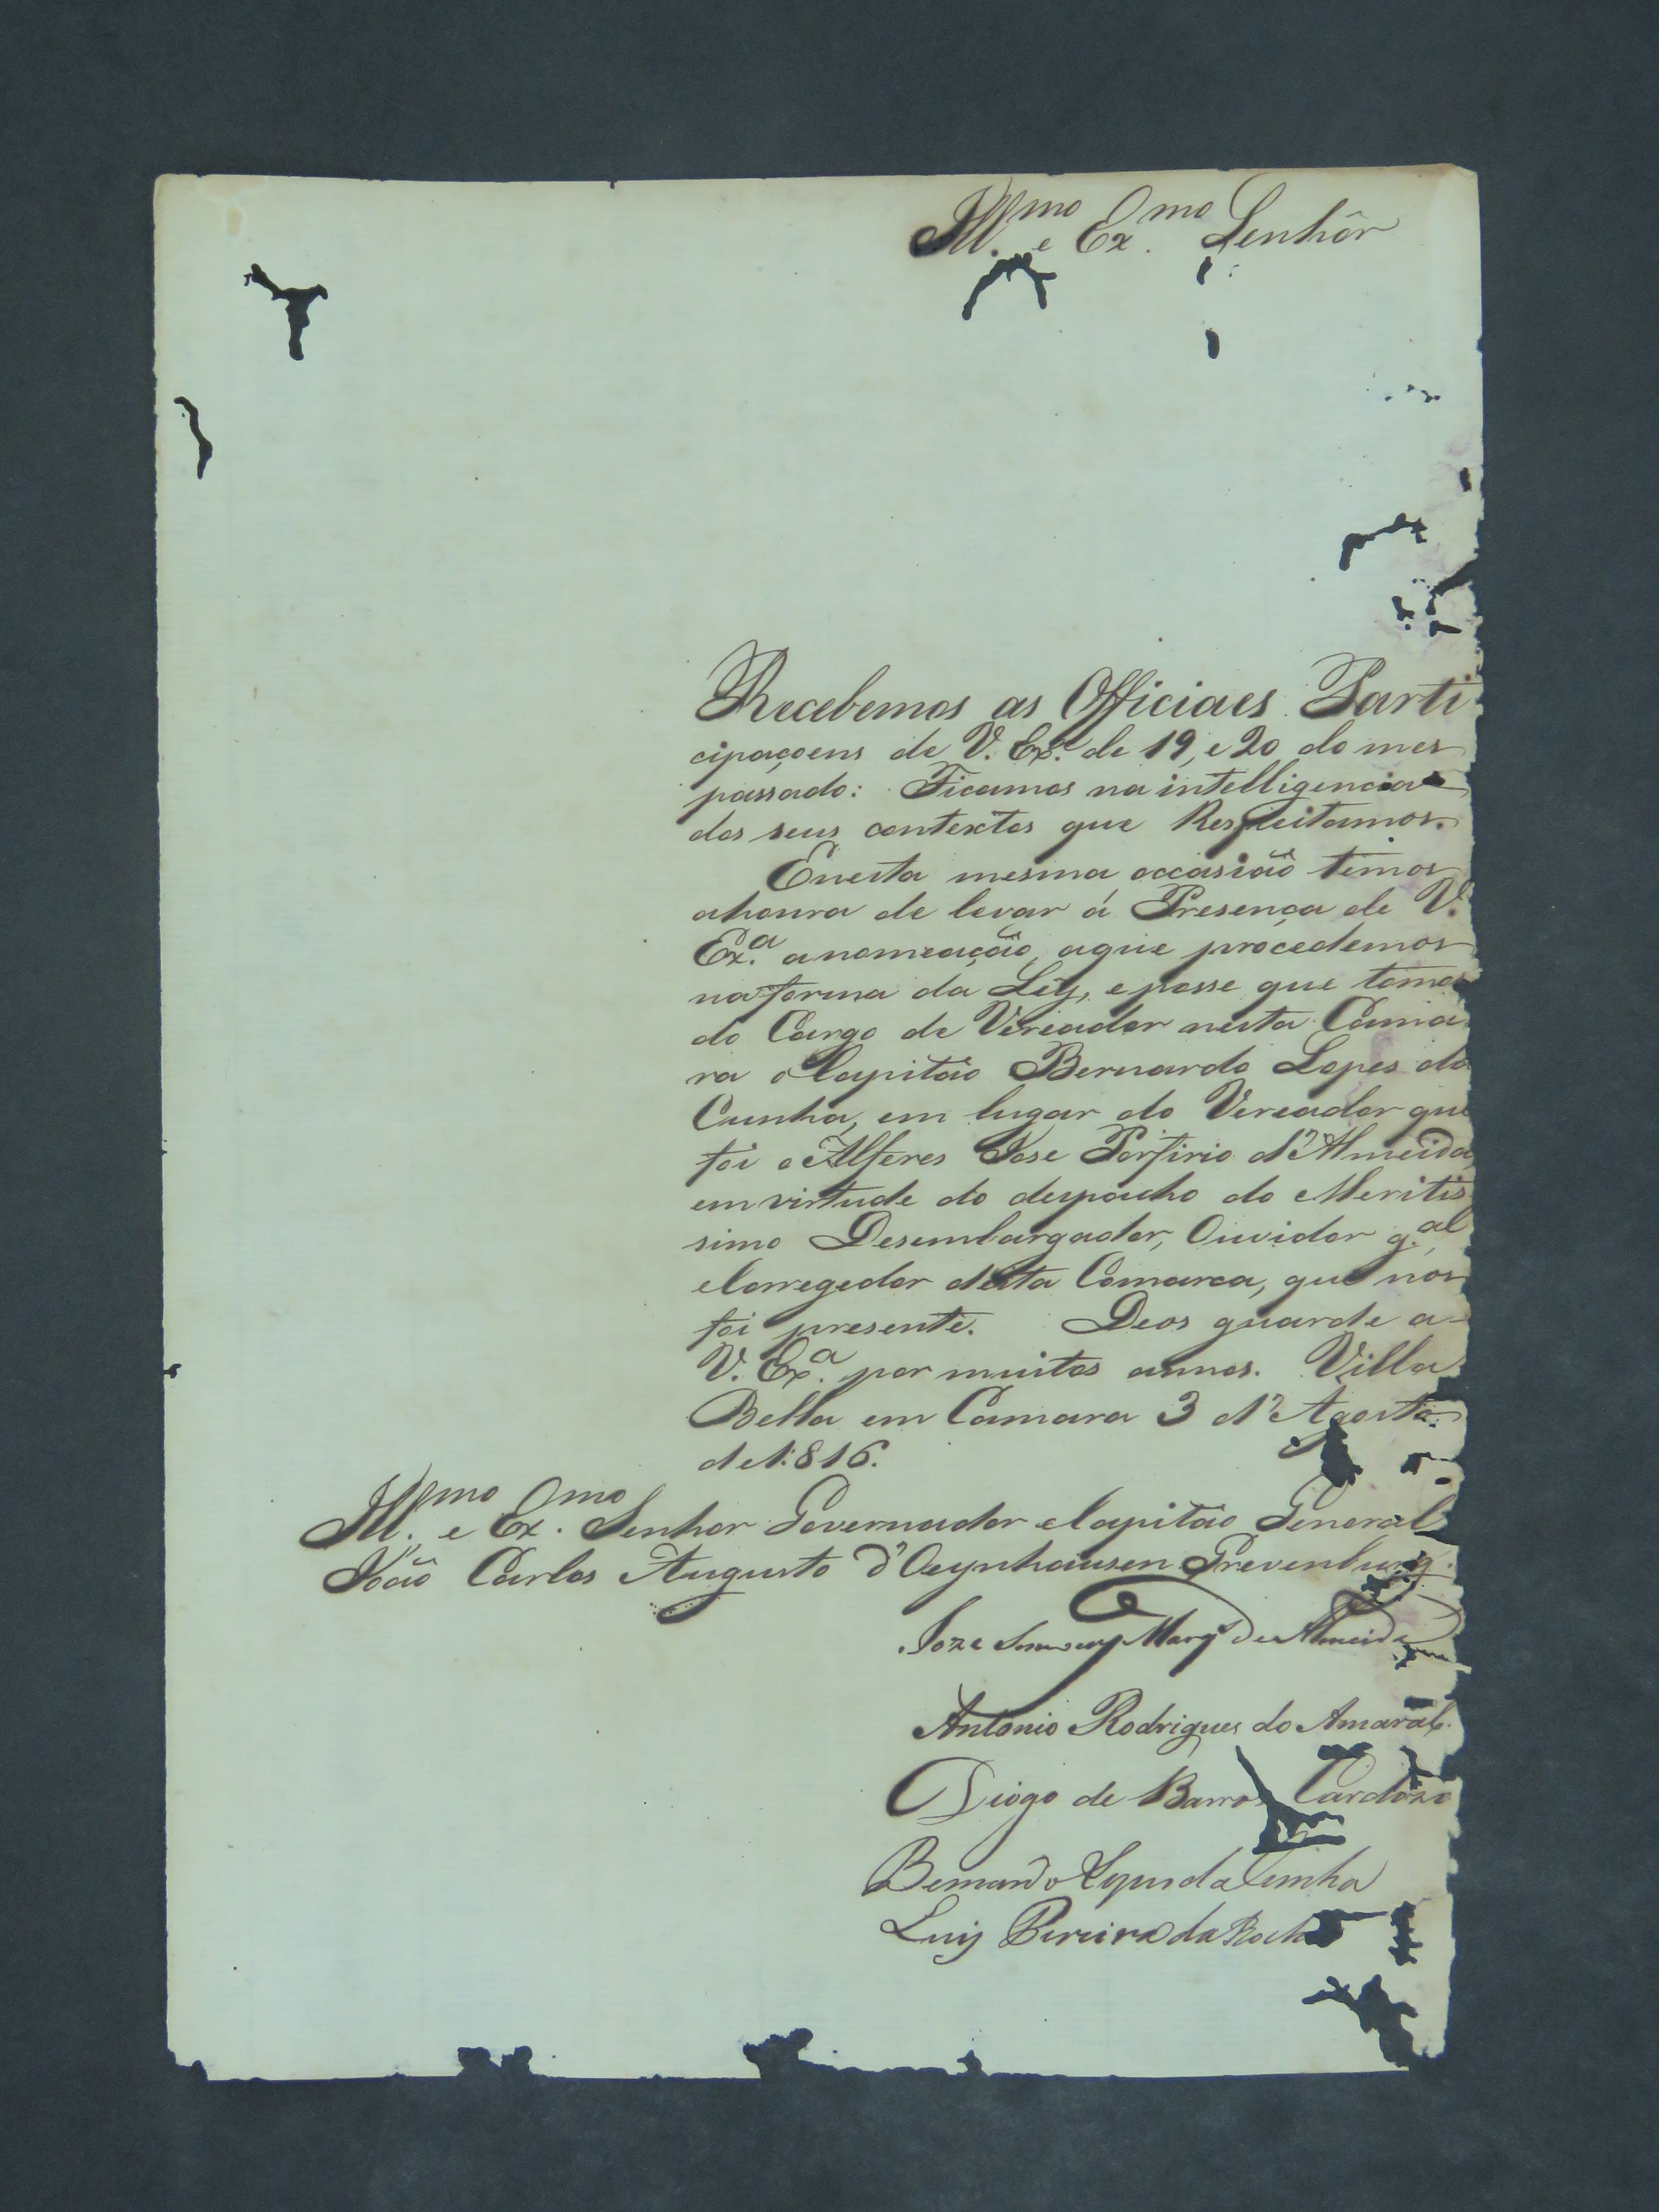 Ill.mo e Ex.mo Senhôr
Recebemos as Officiaes Parti
cipaçoens de V. Ex.ª de 19, e 20 do mes
passado: Ficamos na intelligencia
dos seus contextos que Respeitamos.
Enesta mesma occasiaõ temos
ahonra de levar á Presença de V.
Ex.ª anomeaçaõ, aque procedemos
naforma da Ley, eposse que tomou
do Cargo de Vereador nesta Cama
ra oCapitaõ Bernardo Lopes da
Cunha, em lugar do Vereador que
foi o Alferes Jose Porfirio d'Almeida,
emvirtude do despacho do Meritis
simo Desembargador, Ouvidor g.al
eCorregedor desta Comarca, que nos
foi presente. Deos guarde a
V. Ex.ª por muitos annos. Villa
Bella em Camara 3 d'Agosto
de1:816.
Ill.mo e Ex.mo Senhor Governador eCapitaõ General
Joaõ Carlos Augusto d'Oeynhausen Grevenburg.
Joze de Almeida
Antonio Rodrigues do Amaral
Diogo de Barros Cardozo
Bernardo Lopes da Cunha
Luis Pereira da Rocha